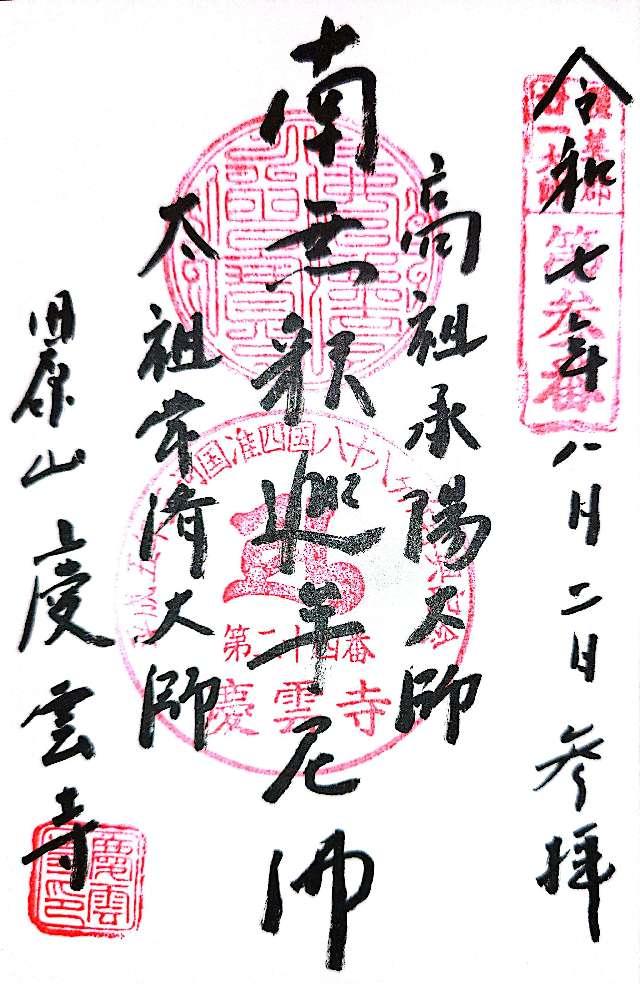 令和七年八月二日 参拝
高祖承陽大師
南無釈迦牟尼佛
太祖常済大師
慶雲寺
第参番
国准四国八十八
第二十四番
慶雲寺
慶雲
寺印